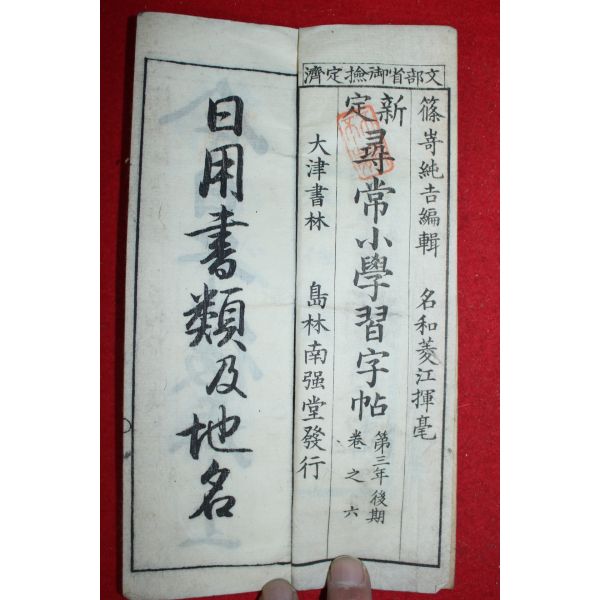 文部省御撿定濟
篠嵜純吉編輯　名和菱江揮毫
新定尋常小學習字帖 第三年後期 卷之六
大津書林　島林南强堂發行
日用書類及地名